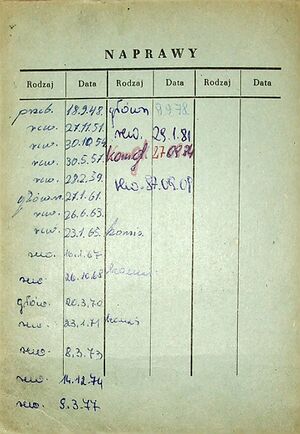 NAPRAWY
Rodzaj Data Rodzaj Data Rodzaj Data
przeb. 18.9.48. główn 9.9.78.
rew. 27.11.51. rew. 29.1.81
rew. 30.10.54
rew. 30.5.57.
rew. 28.2.59.
główn. 27.1.61.
rew. 26.6.63.
rew. 23.1.65.
rew. 16.1.67
rew. 26.10.68
główn. 20.3.70.
rew. 23.1.71
rew. 8.3.73
rew. 14.12.74
rew. 9.3.77